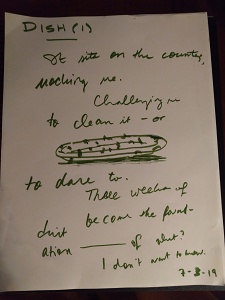 DISH (1)
It sits on the counter,
mocking me.
Challenging me
to clean it - or
to dare to.
Those weeks of
dust become the found-
ation ——— of what?
I don't want to know.
7-8-19